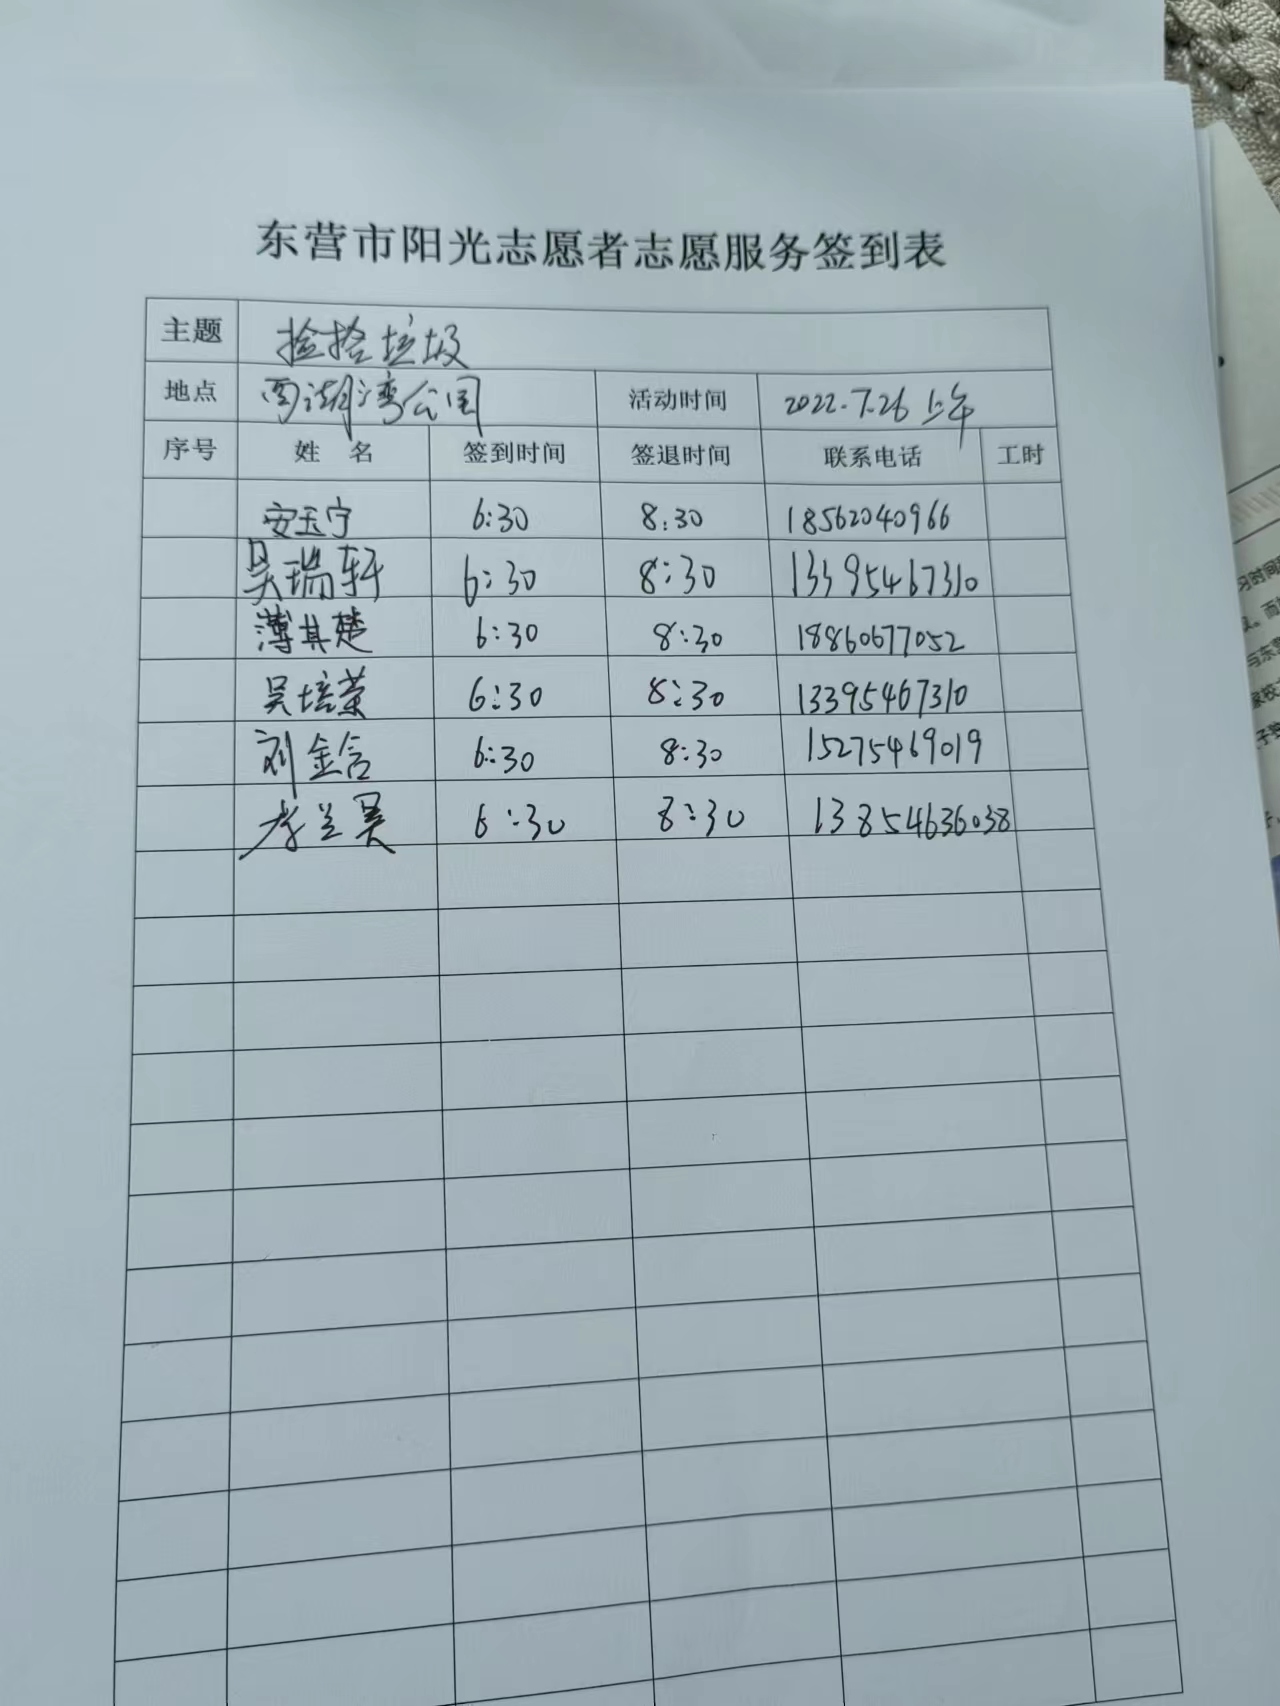 东营市阳光志愿者志愿服务签到表
主题 捡拾垃圾
地点 西湖湾公园 活动时间 2022.7.26 上午
序号 姓 名 签到时间 签退时间 联系电话 工时
安玉宁 6:30 8:30 18562040966
吴瑞轩 6:30 8:30 13395467310
薄其楚 6:30 8:30 18860677052
吴培荣 6:30 8:30 13395467310
刘金含 6:30 8:30 15275469019
兰昊 6:30 8:30 13854636038
习时间
与东营
家校